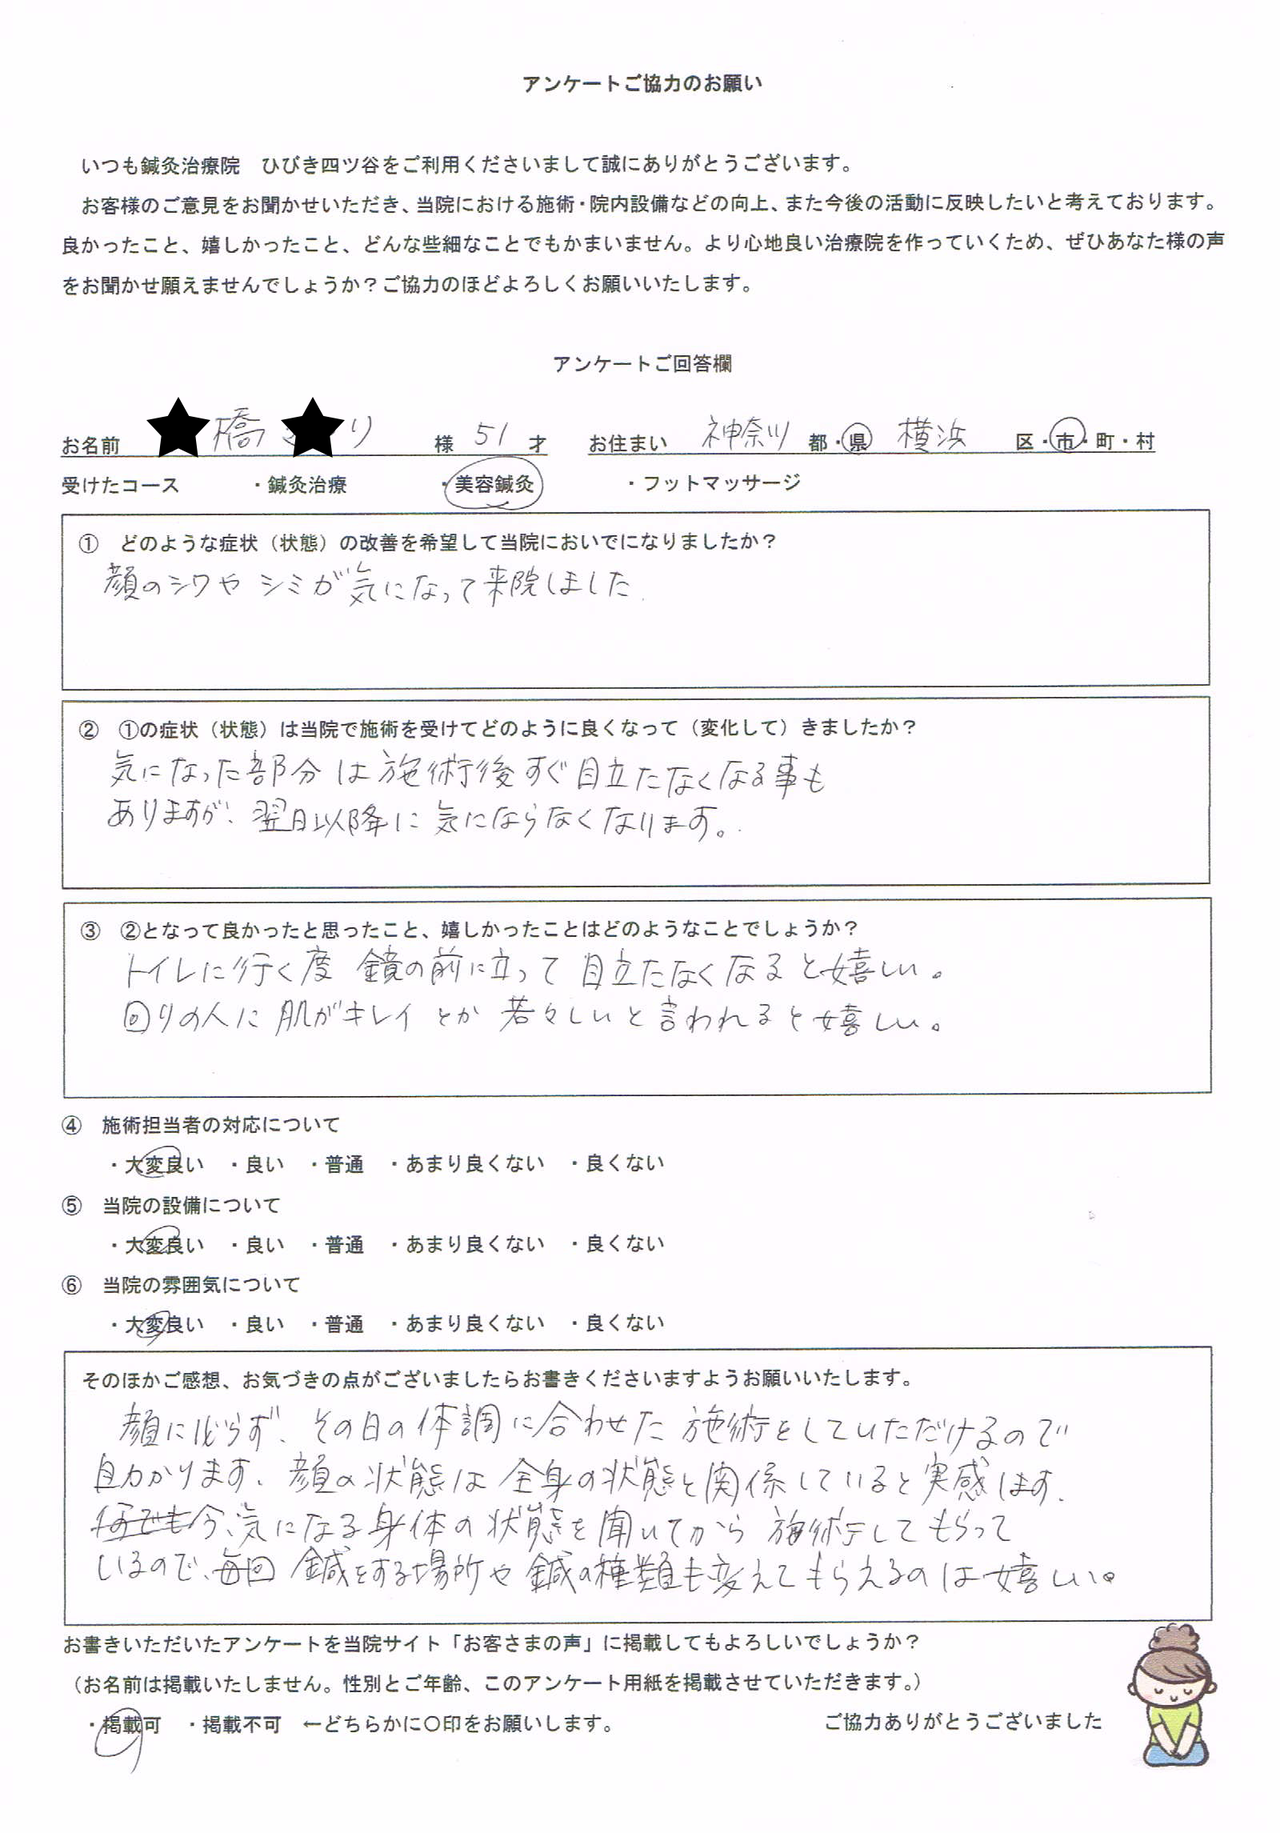 アンケートご協力のお願い
いつも鍼灸治療院　ひびき四ツ谷をご利用くださいまして誠にありがとうございます。
お客様のご意見をお聞かせいただき、当院における施術・院内設備などの向上、また今後の活動に反映したいと考えております。
良かったこと、嬉しかったこと、どんな些細なことでもかまいません。より心地良い治療院を作っていくため、ぜひあなた様の声
をお聞かせ願えませんでしょうか？ご協力のほどよろしくお願いいたします。
アンケートご回答欄
お名前　橋　り　様　51　才　お住まい　神奈川　都・県　横浜　区・市・町・村
受けたコース　・鍼灸治療　・美容鍼灸　・フットマッサージ
①　どのような症状（状態）の改善を希望して当院においでになりましたか？
顔のシワや シミが気になって来院しました
②　①の症状（状態）は当院で施術を受けてどのように良くなって（変化して）きましたか？
気になった部分は施術後すぐ目立たなくなる事も
ありますが、翌日以降に気にならなくなります。
③　②となって良かったと思ったこと、嬉しかったことはどのようなことでしょうか？
トイレに行く度 鏡の前に立って目立たなくなると嬉しい。
回りの人に肌がキレイとか 若々しいと言われると嬉しい。
④　施術担当者の対応について
・大変良い　・良い　・普通　・あまり良くない　・良くない
⑤　当院の設備について
・大変良い　・良い　・普通　・あまり良くない　・良くない
⑥　当院の雰囲気について
・大変良い　・良い　・普通　・あまり良くない　・良くない
そのほかご感想、お気づきの点がございましたらお書きくださいますようお願いいたします。
顔に限らず、その日の体調に合わせた 施術をしていただけるので
助かります。顔の状態は全身の状態と関係していると実感します。
今、気になる身体の状態を聞いてから 施術してもらって
いるので、毎回 鍼をする場所や鍼の種類も変えてもらえるのは嬉しい。
お書きいただいたアンケートを当院サイト「お客さまの声」に掲載してもよろしいでしょうか？
（お名前は掲載いたしません。性別とご年齢、このアンケート用紙を掲載させていただきます。）
・掲載可　・掲載不可　←どちらかに○印をお願いします。　ご協力ありがとうございました